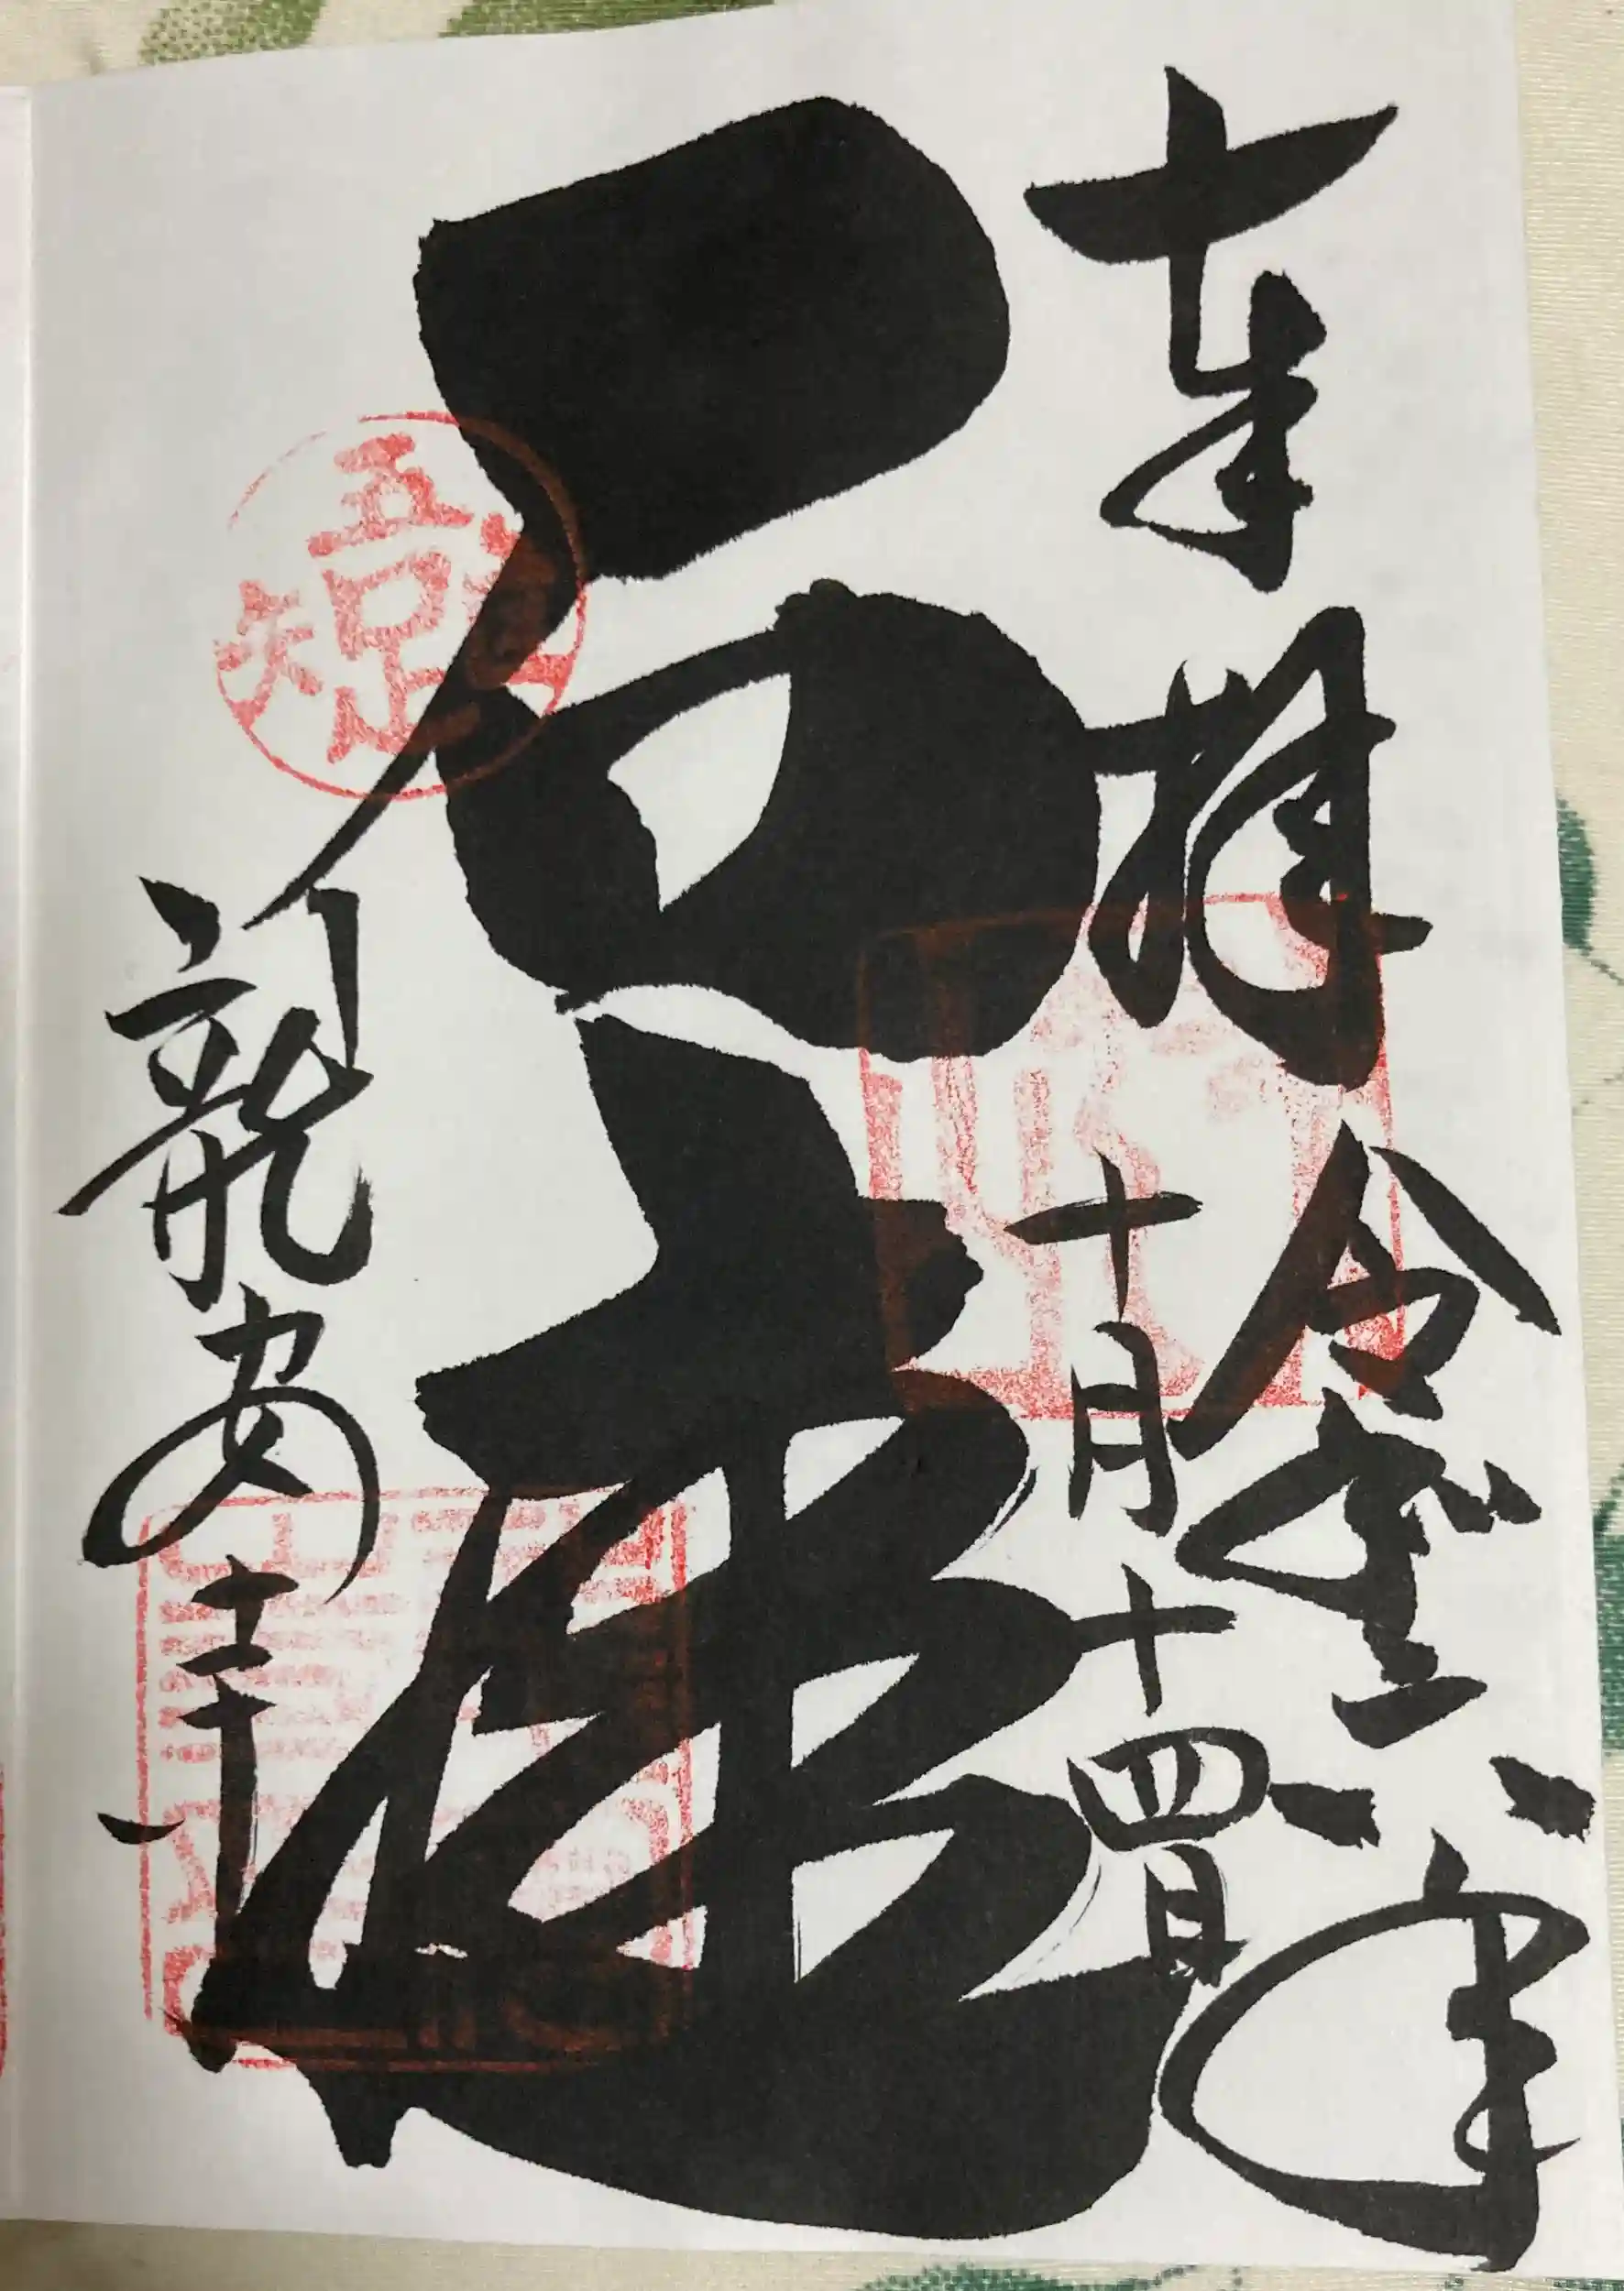 奉拝
令和六年
十月十四日
石庭
龍安寺
吾唯足知